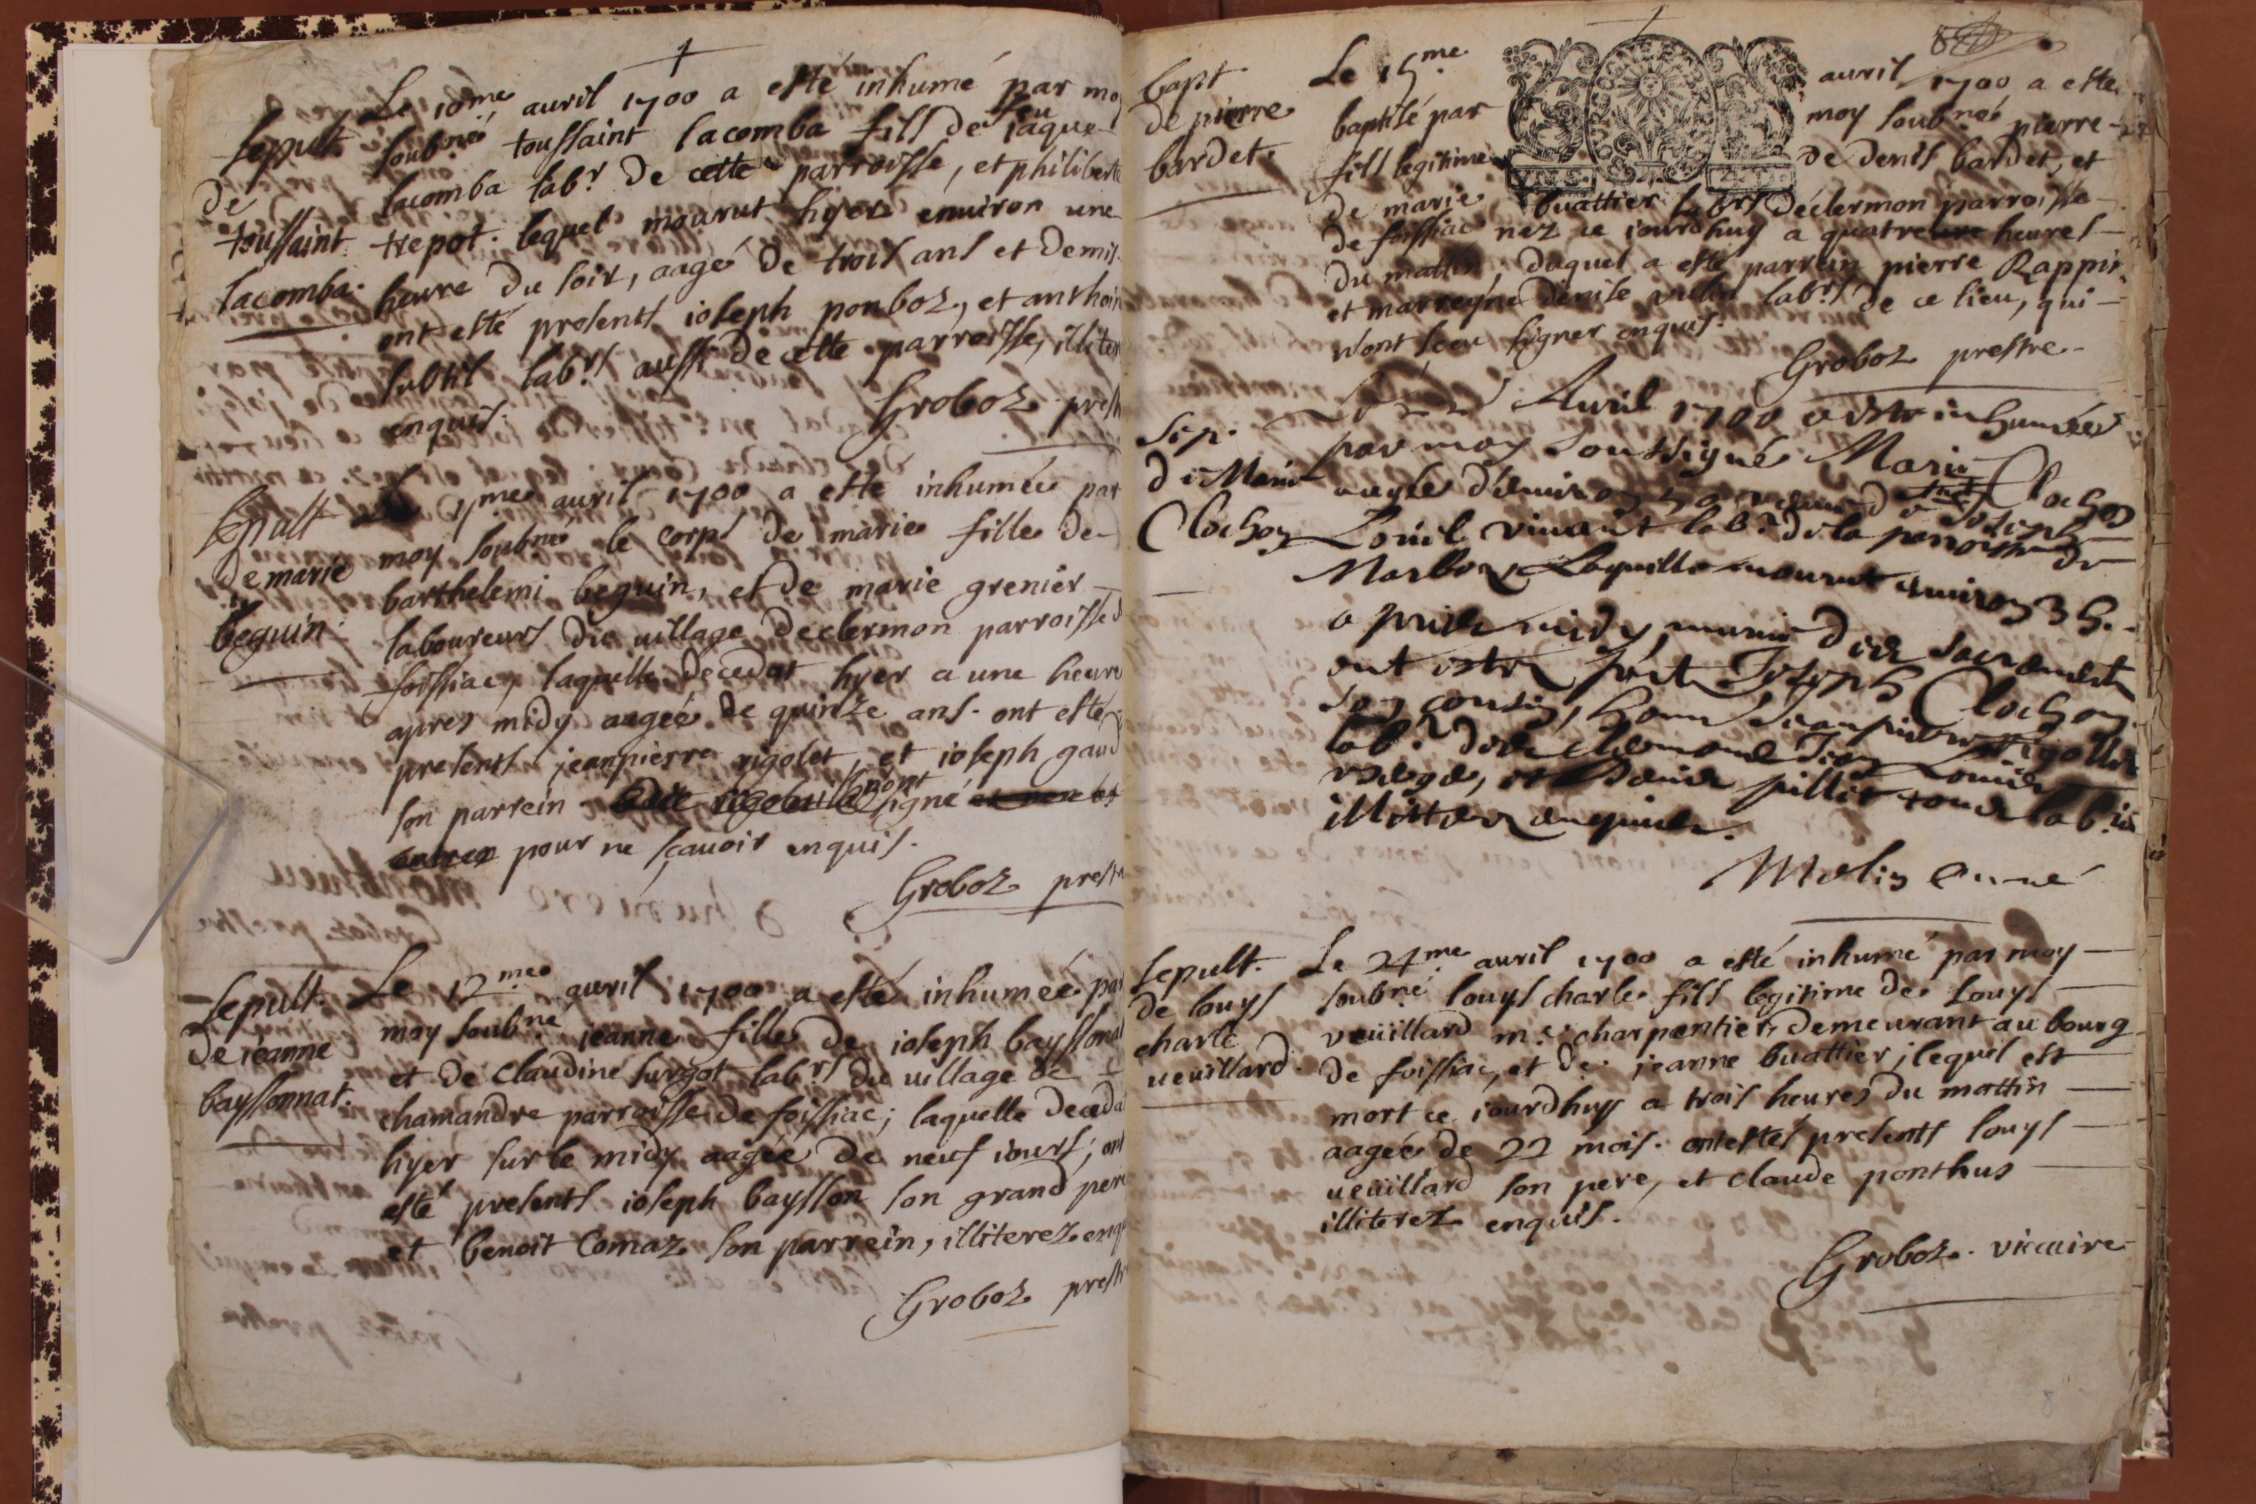 Sepult.
de
toussaint
lacomba.
Le 10me avril 1700 a esté inhumé par moy
soubné toussaint lacomba fils de feu iaque
lacomba labr de cette parroisse, et philiberte
trepot. lequel mourut hyer environ une
heure du soir, aagé de trois ans et demis
ont esté presents ioseph ponboz, et anthoin
subtil labrs aussi de cette parroisse, illiter
enquis.
Groboz prest
Sepult
de marie
beguin.
avril 1700 a esté inhumée par
moy soubné le corps de marie fille de
barthelemi beguin, et de marie grenier
laboureurs du village declermon parroisse d
foissiac, laquelle deceda hyer a une heure
apres midy aagée de quinze ans. ont esté
presents jeanpierre rigolet, et ioseph gaud
son parrein signé
pour ne sçavoir enquis.
Groboz prest
Sepult.
de ieanne
bayssonnat.
Le 12me avril 1700 a esté inhumée par
moy soubné ieanne fille de ioseph bayssonat
et de claudine surgot labrs du village de
chamandre parroisse de foissiac; laquelle deceda
hyer sur le midy aagée de neuf iours; ont
esté presents ioseph baysson son grand pere
et benoit Comaz son parrein, illiterez enq
Groboz prest
bapt.
de pierre
bardet.
Le 15me avril 1700 a esté
baptisé par moy soubné pierre
fils legitime de denis bardet, et
de marie buattier labrs declermon parroisse
de foissiac nez ce iourdhuy a quatre heures
du mattin, duquel a esté parrein pierre Rappin
et marreyne denise labrs de ce lieu, qui
n'ont sceu signer enquis.
Groboz prestre
Sep.
de Marie
Clochon
Avril 1700 a este inhumée
par moy soussigné Marie Clochon
aagée d'environ
Louis vivant labr de la parroisse de
Marboz Laquelle mourut environ 3 h.
apres midy, munie des sacrements
ont estez pnts Joseph Clochon
son cousin, honn Jeanpierre rigollet
labr
pillet tous labrs
illitterez enquis.
Molin curé
Sepult.
de louys
charle
ueuillard.
Le 24me avril 1700 a esté inhumé par moy
soubné louys charle fils legitime de Louys
veuillard me charpentier demeurant au bourg
de foissiac, et de jeanne buattier; lequel est
mort ce iourdhuy a trois heures du mattin
aagée de 22 mois. ont estés presents louys
ueuillard son pere, et claude ponthus
illiterez enquis.
Groboz. vicaire
8